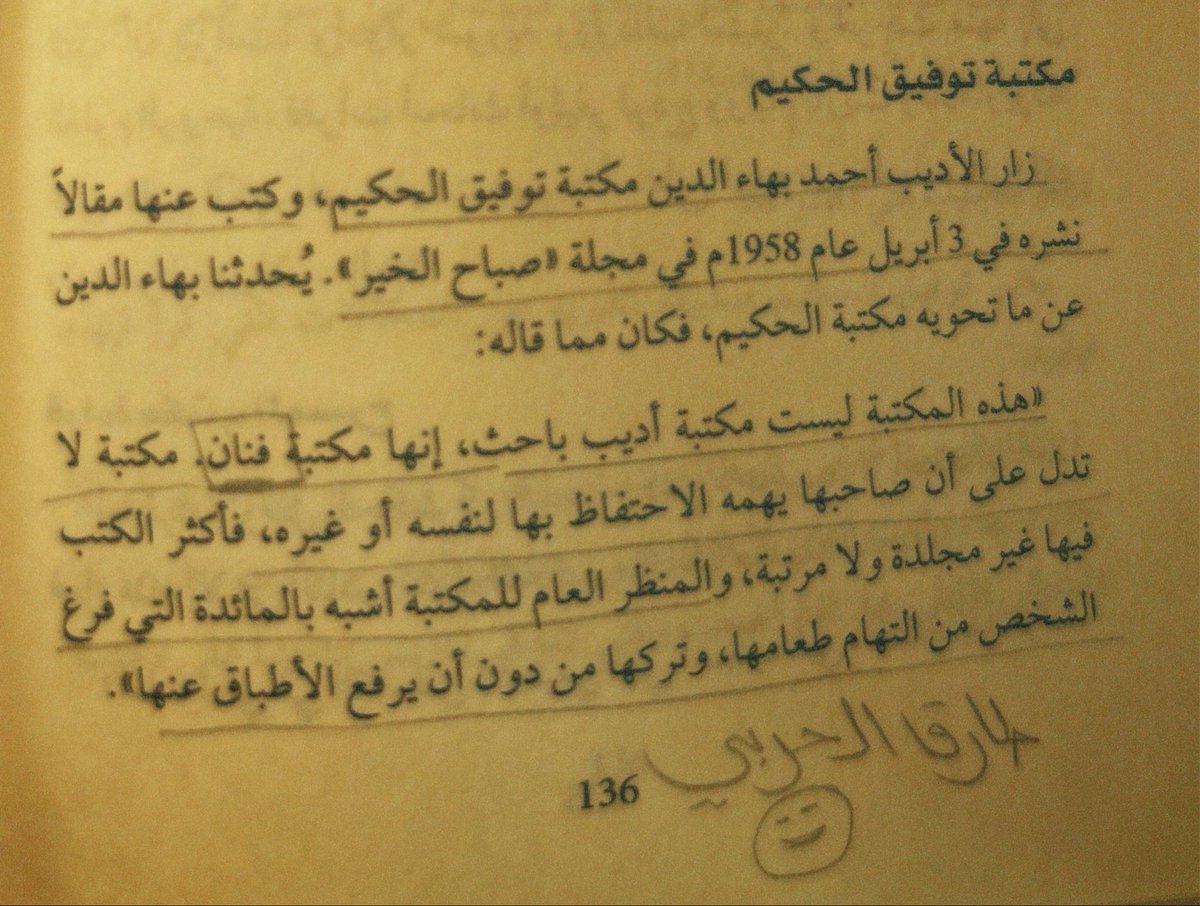 مكتبة توفيق الحكيم
زار الأديب أحمد بهاء الدين مكتبة توفيق الحكيم، وكتب عنها مقالاً
نشره في 3 أبريل عام 1958م في مجلة «صباح الخير». يُحدثنا بهاء الدين
عن ما تحويه مكتبة الحكيم، فكان مما قاله:
«هذه المكتبة ليست مكتبة أديب باحث، إنها مكتبة فنان. مكتبة لا
تدل على أن صاحبها يهمه الاحتفاظ بها لنفسه أو غيره، فأكثر الكتب
فيها غير مجلدة ولا مرتبة، والمنظر العام للمكتبة أشبه بالمائدة التي فرغ
الشخص من التهام طعامها، وتركها من دون أن يرفع الأطباق عنها».
طارق الحربي
136